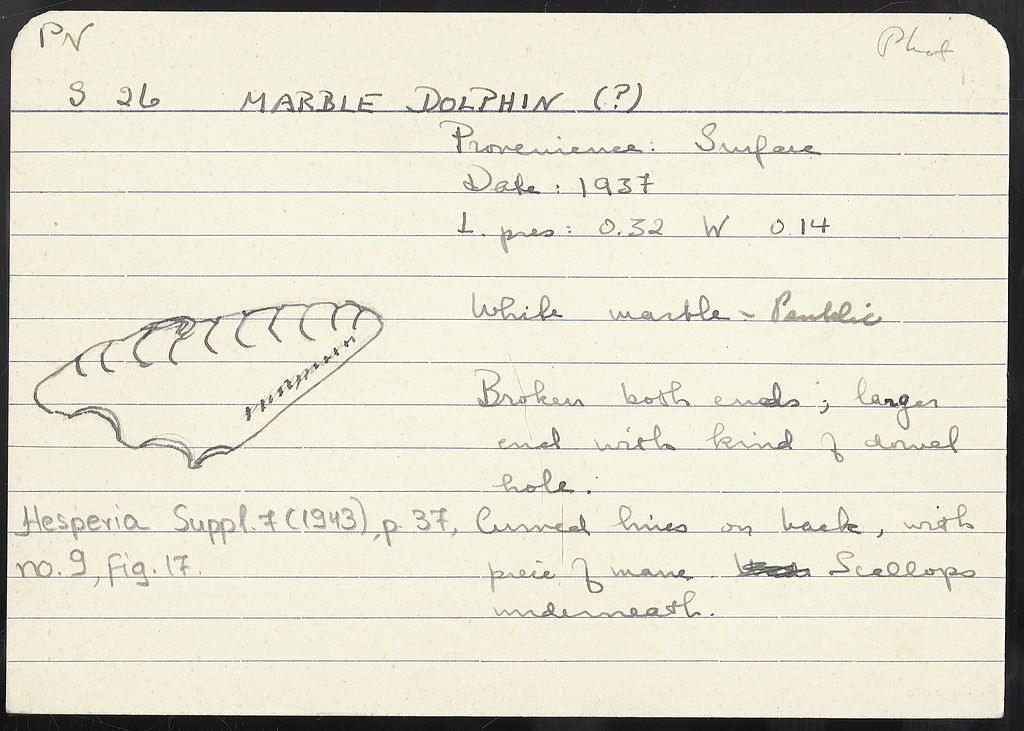 PN
Phot
S 26 MARBLE DOLPHIN (?)
Provenience: Surface
Date: 1937
L. pres: 0.32 W 0.14
White marble - Pentelic
Broken both ends; larger
end with kind of dowel
hole.
Curved lines on back, with
piece of mane. Scallops
underneath.
Hesperia Suppl. 7 (1943), p. 37,
no. 9, fig. 17.